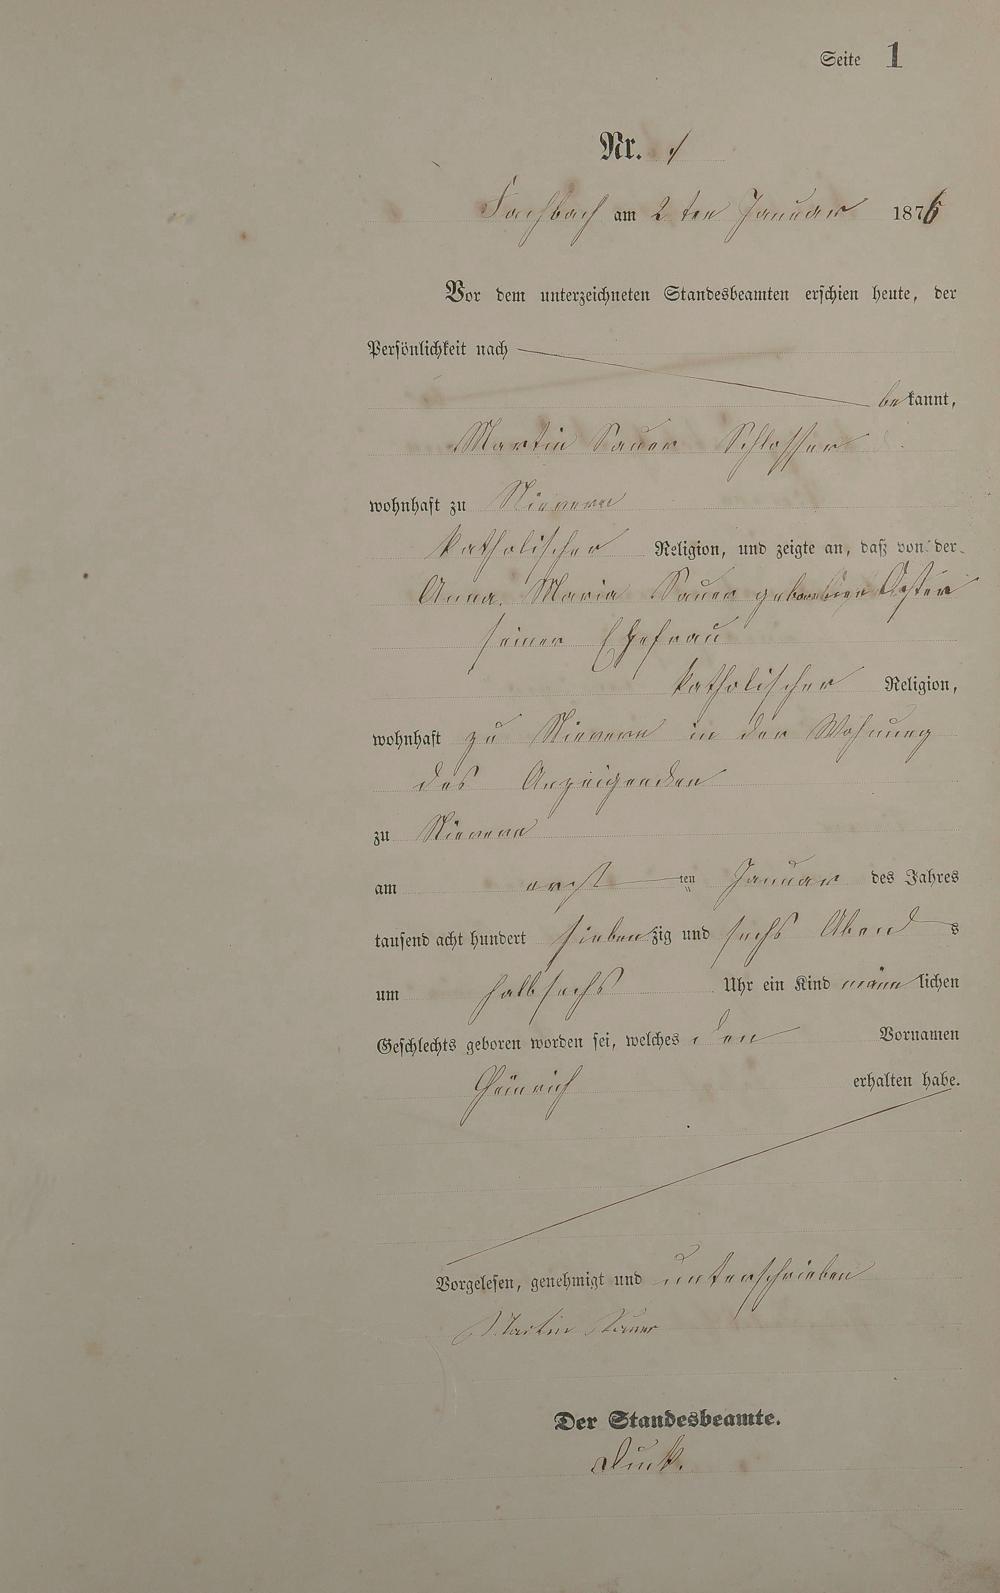 Seite 1
Nr. 1
Fachbach am 2 ten Januar 1876
Vor dem unterzeichneten Standesbeamten erschien heute, der
Persönlichkeit nach
bekannt,
Martin Sauer Schlosser
wohnhaft zu Nievern
katholischer Religion, und zeigte an, daß von der
Anna Maria Sauer geborene
seiner Ehefrau
katholischer Religion,
wohnhaft zu Nievern in der Wohnung
des Anzeigenden
zu Nievern
am erst ten Januar des Jahres
tausend acht hundert siebenzig und sechs Abends
um halb sechs Uhr ein Kind männlichen
Geschlechts geboren worden sei, welches den Vornamen
Heinrich erhalten habe.
Vorgelesen, genehmigt und unterschrieben
Martin Sauer
Der Standesbeamte.